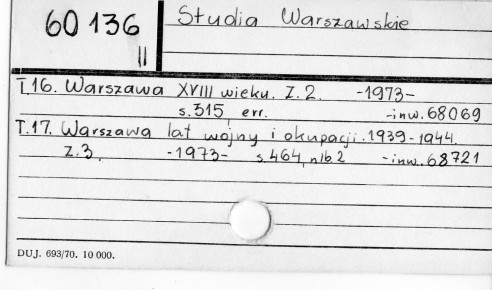 60 136
II
Studia Warszawskie
T.16. Warszawa XVIII wieku. Z.2. -1973-
s.315, err. -inw.68069
T.17. Warszawa lat wojny i okupacji.1939-1944.
Z.3, -1973- s.464, nlb.2 -inw.68721
DUJ. 693/70. 10 000.